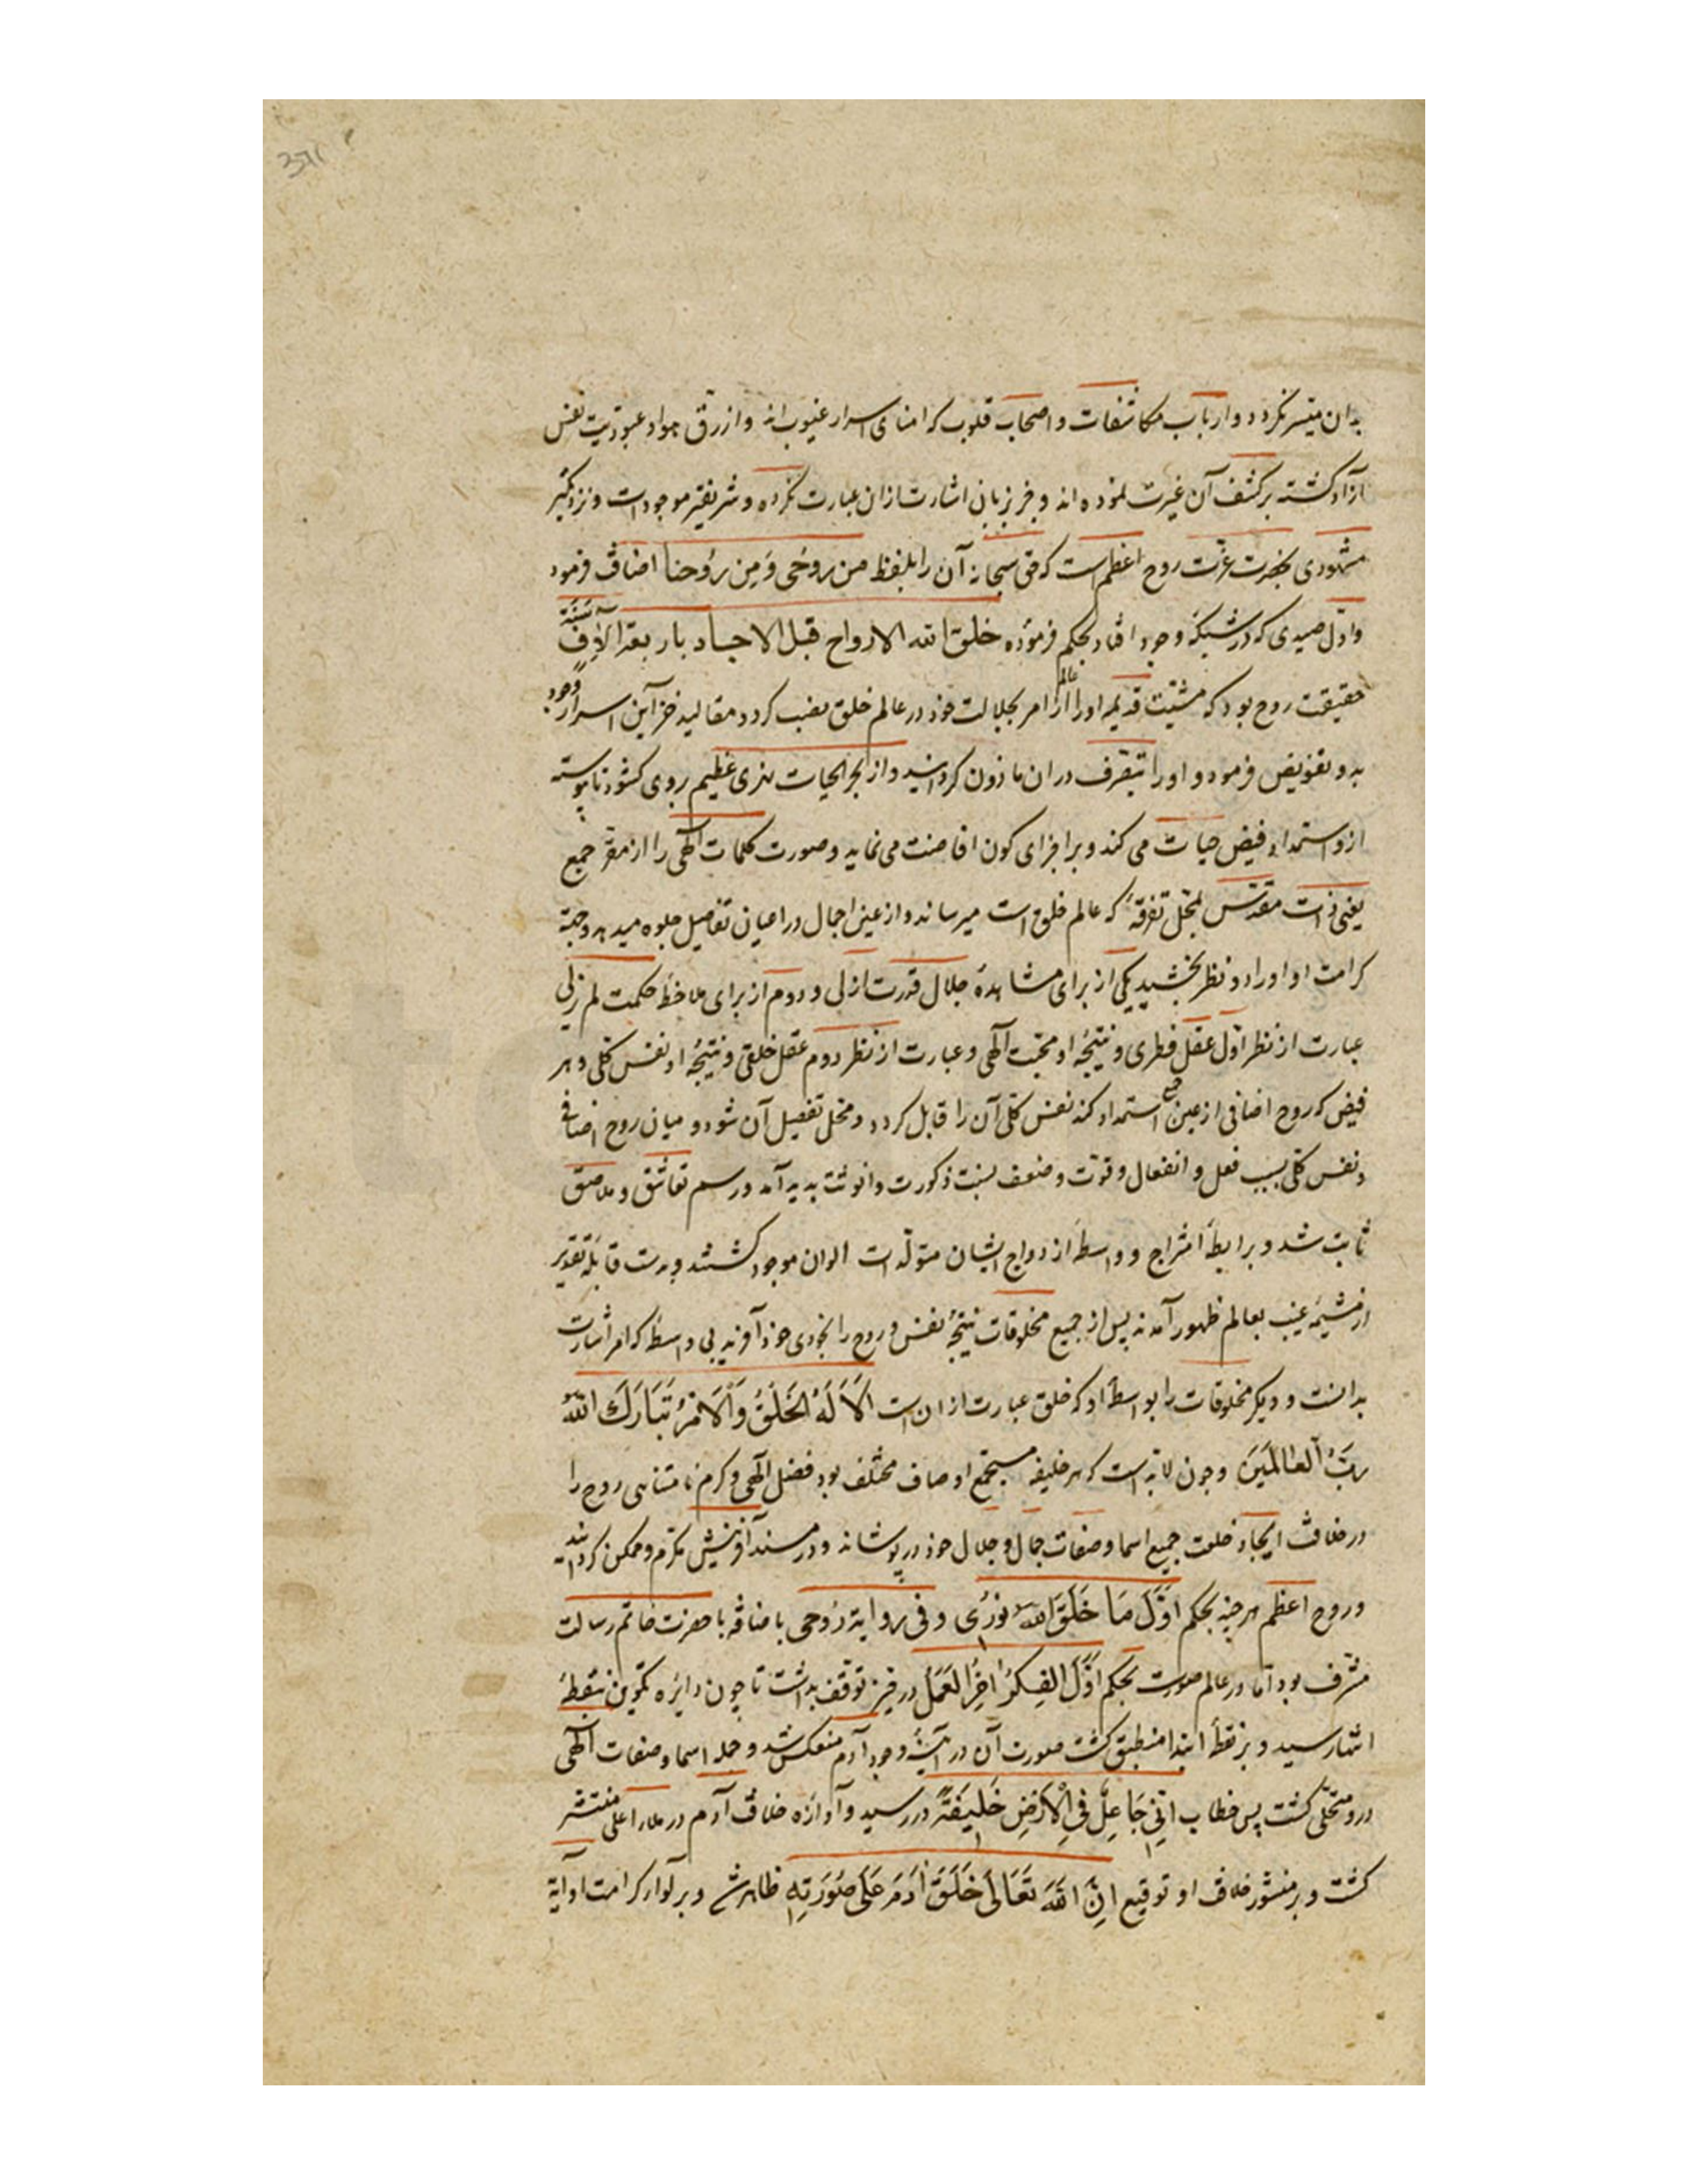 بدان میسر نکردد و ارباب مکاشفات و اصحاب قلوب که امنای اسرار غیوب اند و از رق هوا و عبودیت نفس
آزاد کشته بر کشف آن غیرت نموده اند و جز بزبان اشارت ازان عبارت نکرده و شریفتر موجودات و نزدیکتر
مشهودی بحضرت عزت روح اعظم است که حق سبحانه آن را بلفظ من روحی وَمِن رُوحنا اضافت فرمود
و اول صیدی که در شبکهٔ وجود افتاد بحکم فرموده خلق الله الارواح قبل الاجساد باربعة الآفِ سَنَة
حقیقت روح بود که مشیّت قدیمه او را از عالم امر بجلالت خود در عالم خلق نصب کرد و مقالید خزاین اسرار وجود
بدو تفویض فرمود و او را بتصرف در ان ماذون کردانید و از بحر الحیات نهری عظیم بروی کشود تا پیوسته
ازو استمداد فیض حیات می کند و بر اجزای کون افاضت می نماید و صورت کلمات آلهی را از مقر جمع
یعنی ذات مقدس بمحل تفرقه که عالم خلق است میرساند و از عین اجمال در اعیان تفاصیل جلوه میدهد و جهة
کرامت او او را دو نظر بخشید یکی از برای مشاهدهٔ جلال قدرت ازلی و دوم از برای ملاحظهٔ حکمت لم یزلی
عبارت از نظر اوّل عقل فطری و نتیجهٔ او محبت آلهی و عبارت از نظر دوم عقل خلقی و نتیجهٔ او نفس کلی و هر
فیض که روح اضافی از عین جمع استمداد کند نفس کلی آن را قابل کردد و محل تفصیل آن شود و میان روح اضافی
و نفس کلی بسبب فعل و انفعال و قوّت و ضعف نسبت ذکورت و انوثت پدید آمد و رسم تعاشق و
ثابت شد و برابطهٔ امتزاج و واسطهٔ ازدواج ایشان متولدات اکوان موجود کشتند و بدست قابلهٔ تقدیر
از مشیمهٔ غیب بعالم ظهور آمدند پس از جمیع مخلوقات نتیجهٔ نفس و روح را بخودی خود آفرید بی واسطه که امر اشارت
بدانست و دیکر مخلوقات را بواسطهٔ او که خلق عبارت از ان است اَلَا لَهُ الخَلْقُ وَالَامْرُ تَبَارَكَ اللهُ
رَبُّ العَالَمَینَ و چون لابد است که هر خلیفه مستجمع اوصاف مختلف بود فضل آلهی و کرم نامتناهی روح را
در خلافت ایجاد خلعت جمیع اسما و صفات جمال و جلال خود در پوشانید و در مسند آفرینش مکرم و ممکن کردانید
و روح اعظم هر چند بحکم اَوَّلَ مَا خَلَقَ اللهُ نورُی و فی روایة رُوحی باضافه با حضرت خاتم رسالت
مشرف بود اما در عالم صورت بحکم اَوَّلَ الفِکرُ اخِرُ العَمَلُ در حیز توقف بداشت تا چون دایره تکوین بنقطهٔ
انتها رسید و بر نقطهٔ ابتدا منطبق کشت صورت آن در آینهٔ وجود آدم منعکس شد و جمله اسما و صفات آلهی
درو متجلّی کشت پس خطاب اِنِّی جَاعِلٌ فِی الْاَرْضِ خَلِیفَةً در رسید و آوازه خلافت آدم در ملاء اعلی منتشر
کشت و بر منشور خلافت او توقیع اِنَّ اللهَ تَعَالَی خَلَقَ اٰدَمَ عَلَی صُوُرَتِهِ ظاهر شد و بر لواء کرامت او آیة